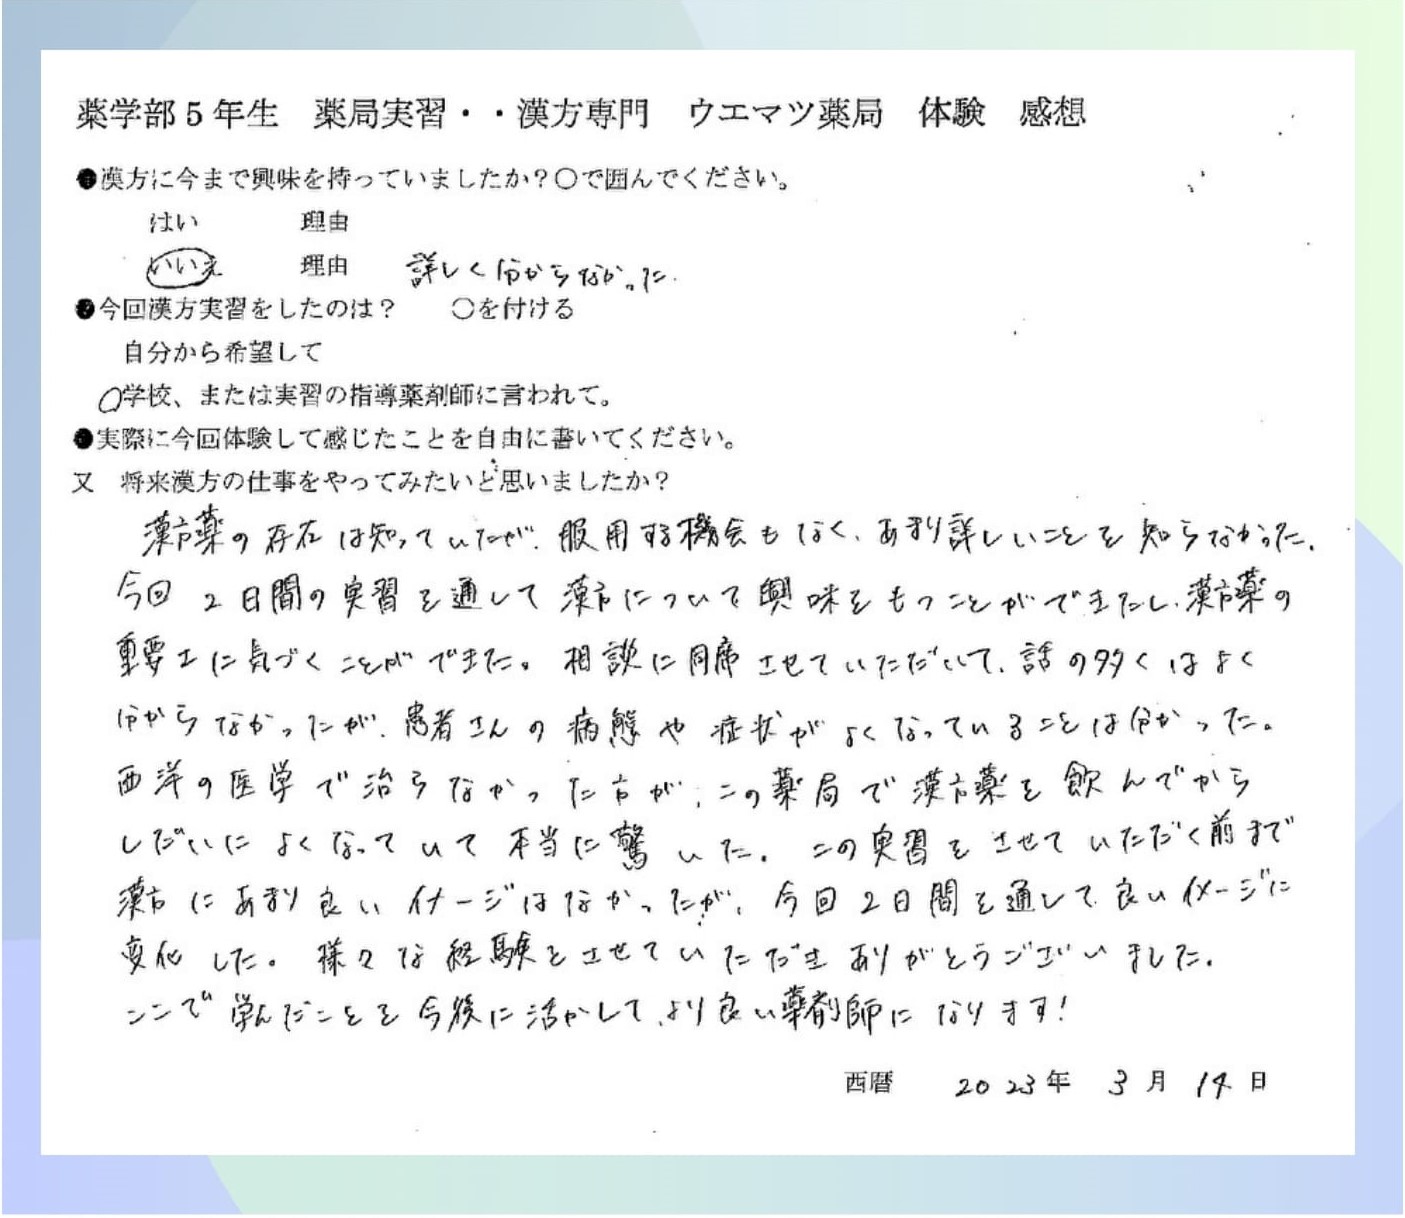 薬学部5年生　薬局実習・・漢方専門　ウエマツ薬局　体験　感想
●漢方に今まで興味を持っていましたか？〇で囲んでください。
はい　理由
いいえ　理由　詳しく分からなかった.
●今回漢方実習をしたのは？　〇を付ける
自分から希望して
〇学校、または実習の指導薬剤師に言われて。
●実際に今回体験して感じたことを自由に書いてください。
又　将来漢方の仕事をやってみたいと思いましたか？
漢方薬の存在は知っていたが、服用する機会もなく、あまり詳しいことを知らなかった。
今回2日間の実習を通して漢方について興味をもつことができたし、漢方薬の
重要さに気づくことができた。相談に同席させていただいて、話の多くはよく
分からなかったが、患者さんの病態や症状がよくなっていることは分かった。
西洋の医学で治らなかった方が、この薬局で漢方薬を飲んでから
しだいによくなっていて本当に驚いた。この実習をさせていただく前まで
漢方にあまり良いイメージはなかったが、今回2日間を通して良いイメージに
変化した。様々な経験をさせていただきありがとうございました。
ここで学んだことを今後に活かして、より良い薬剤師になります！
西暦　2023年　3月　14日